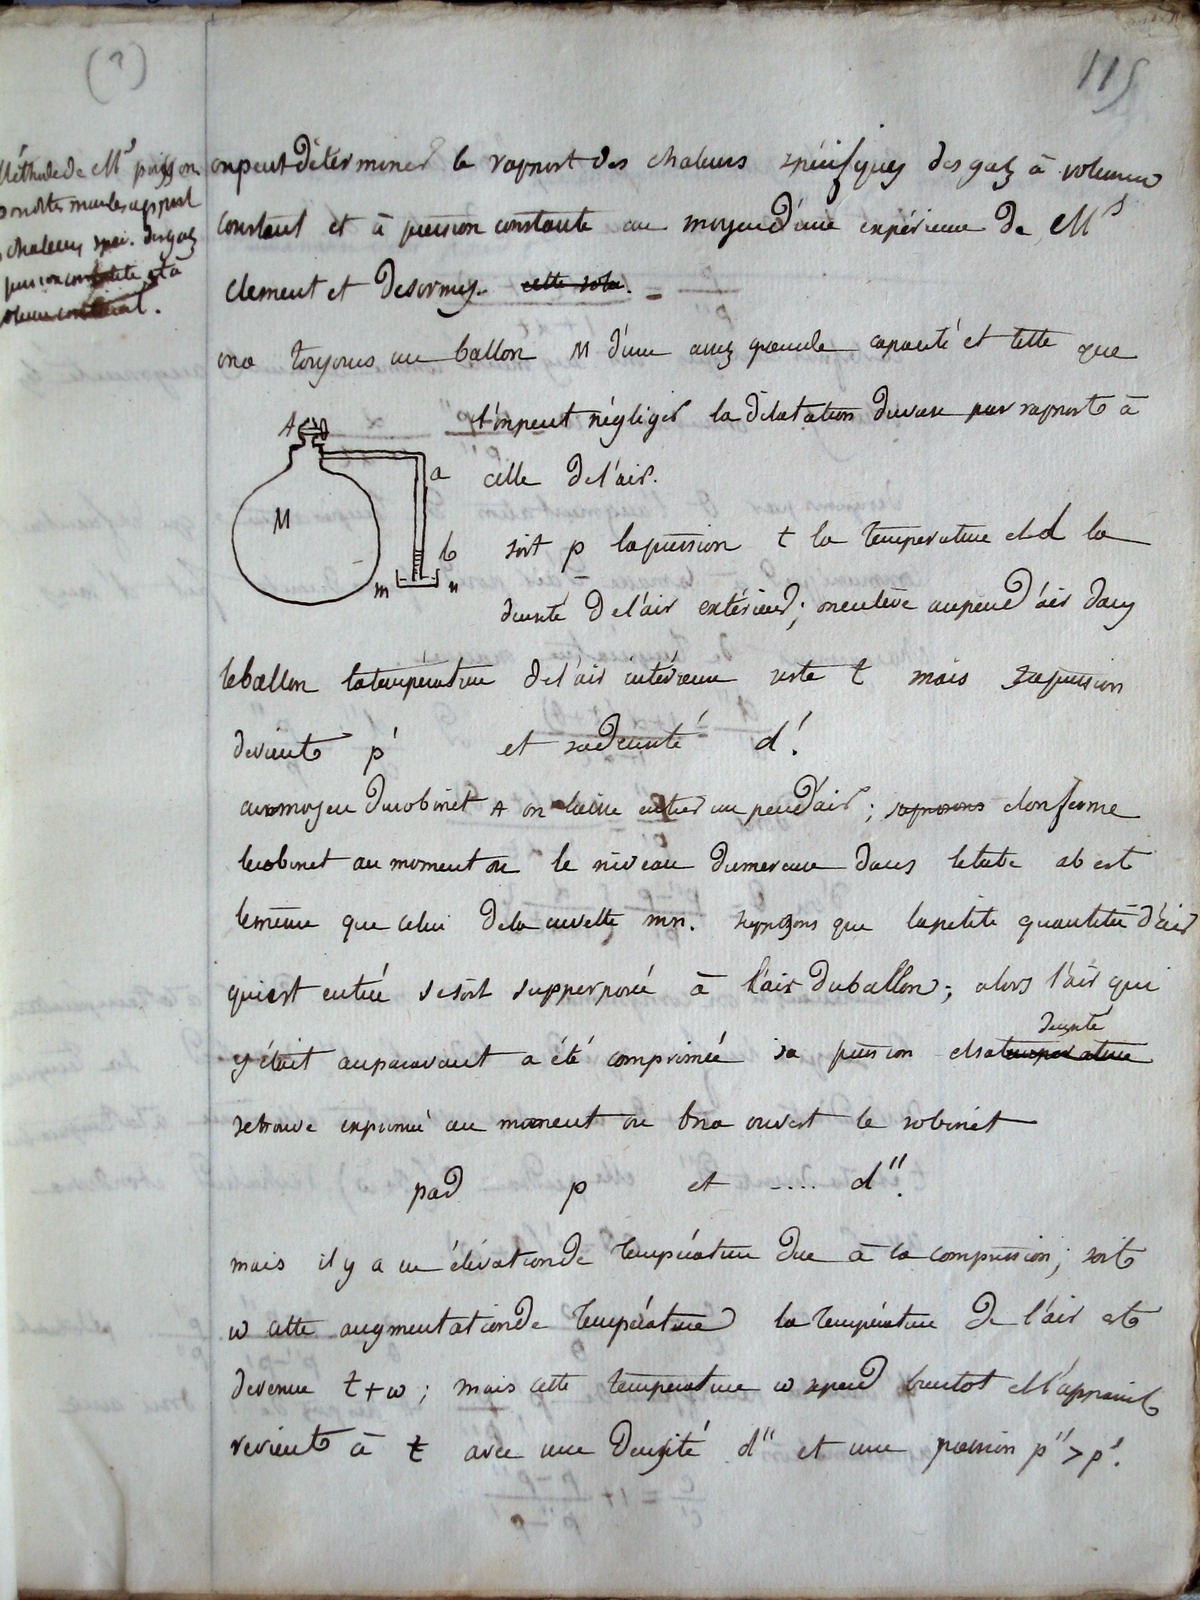 (?)
115
Méthode de Mr poisson
pour determiner le rapport
chaleurs spéci. des gaz
pression constante et à
volume constant.
on peut déterminer le rapport des chaleurs spécifiques des gaz à volume
constant et à pression constante au moyen d'une expérience de Mrs
clement et desormes. cette solu.
on a toujours un ballon M d'une assez grande capacité et telle que
l'on peut négliger la dilatation du vase par rapport à
celle de l'air.
A
M
a
b
m n
soit p la pression t la temperature et d la
densité de l'air extérieur; on enlève un peu d'air dans
le ballon la température de l'air intérieur reste t mais sa pression
devient p' et sa densité d'.
au moyen du robinet A on laisse entrer un peu d'air; supposons et on ferme
le robinet au moment ou le niveau du mercure dans le tube ab est
le même que celui de la cuvette mn. supposons que la petite quantité d'air
qui est entrée se soit supperposée à l'air du ballon; alors l'air qui
y était auparavant a été comprimé sa pression et sa temperature densité
se trouve exprimé au moment ou l'on a ouvert le robinet
par p et .... d''.
mais il y a un élévation de température due à la compression; soit
w cette augmentation de température la température de l'air est
devenue t+w; mais cette temperature w se perd bientot et l'appareil
revient à t avec une densité d'' et une pression p''>p'.